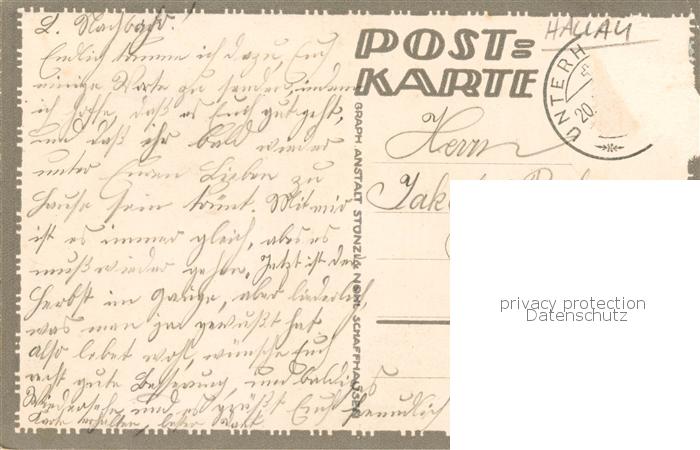 L. Nachbar!
Endlich komme ich dazu, Euch
einige Worte zu senden, indem
ich hoffe, daß es Euch gut geht,
und daß ihr bald wieder
unter Euren Lieben zu
Hause sein könnt. Mit mir
ist es immer gleich, aber es
muß wieder gehen. Jetzt ist der
Herbst im Gange, aber liederlich,
was man ja gewußt hat
also lebet wohl, wünsche Euch
recht gute Besserung, und baldiges
Wiedersehn und es grüßt Euch freundlich
Karte erhalten, besten Dank
POST=
KARTE
HALLAU
UNTERH
20.
Herrn
Jak
GRAPH. ANSTALT STÜNZI & NOHL SCHAFFHAUSEN
privacy protection
Datenschutz